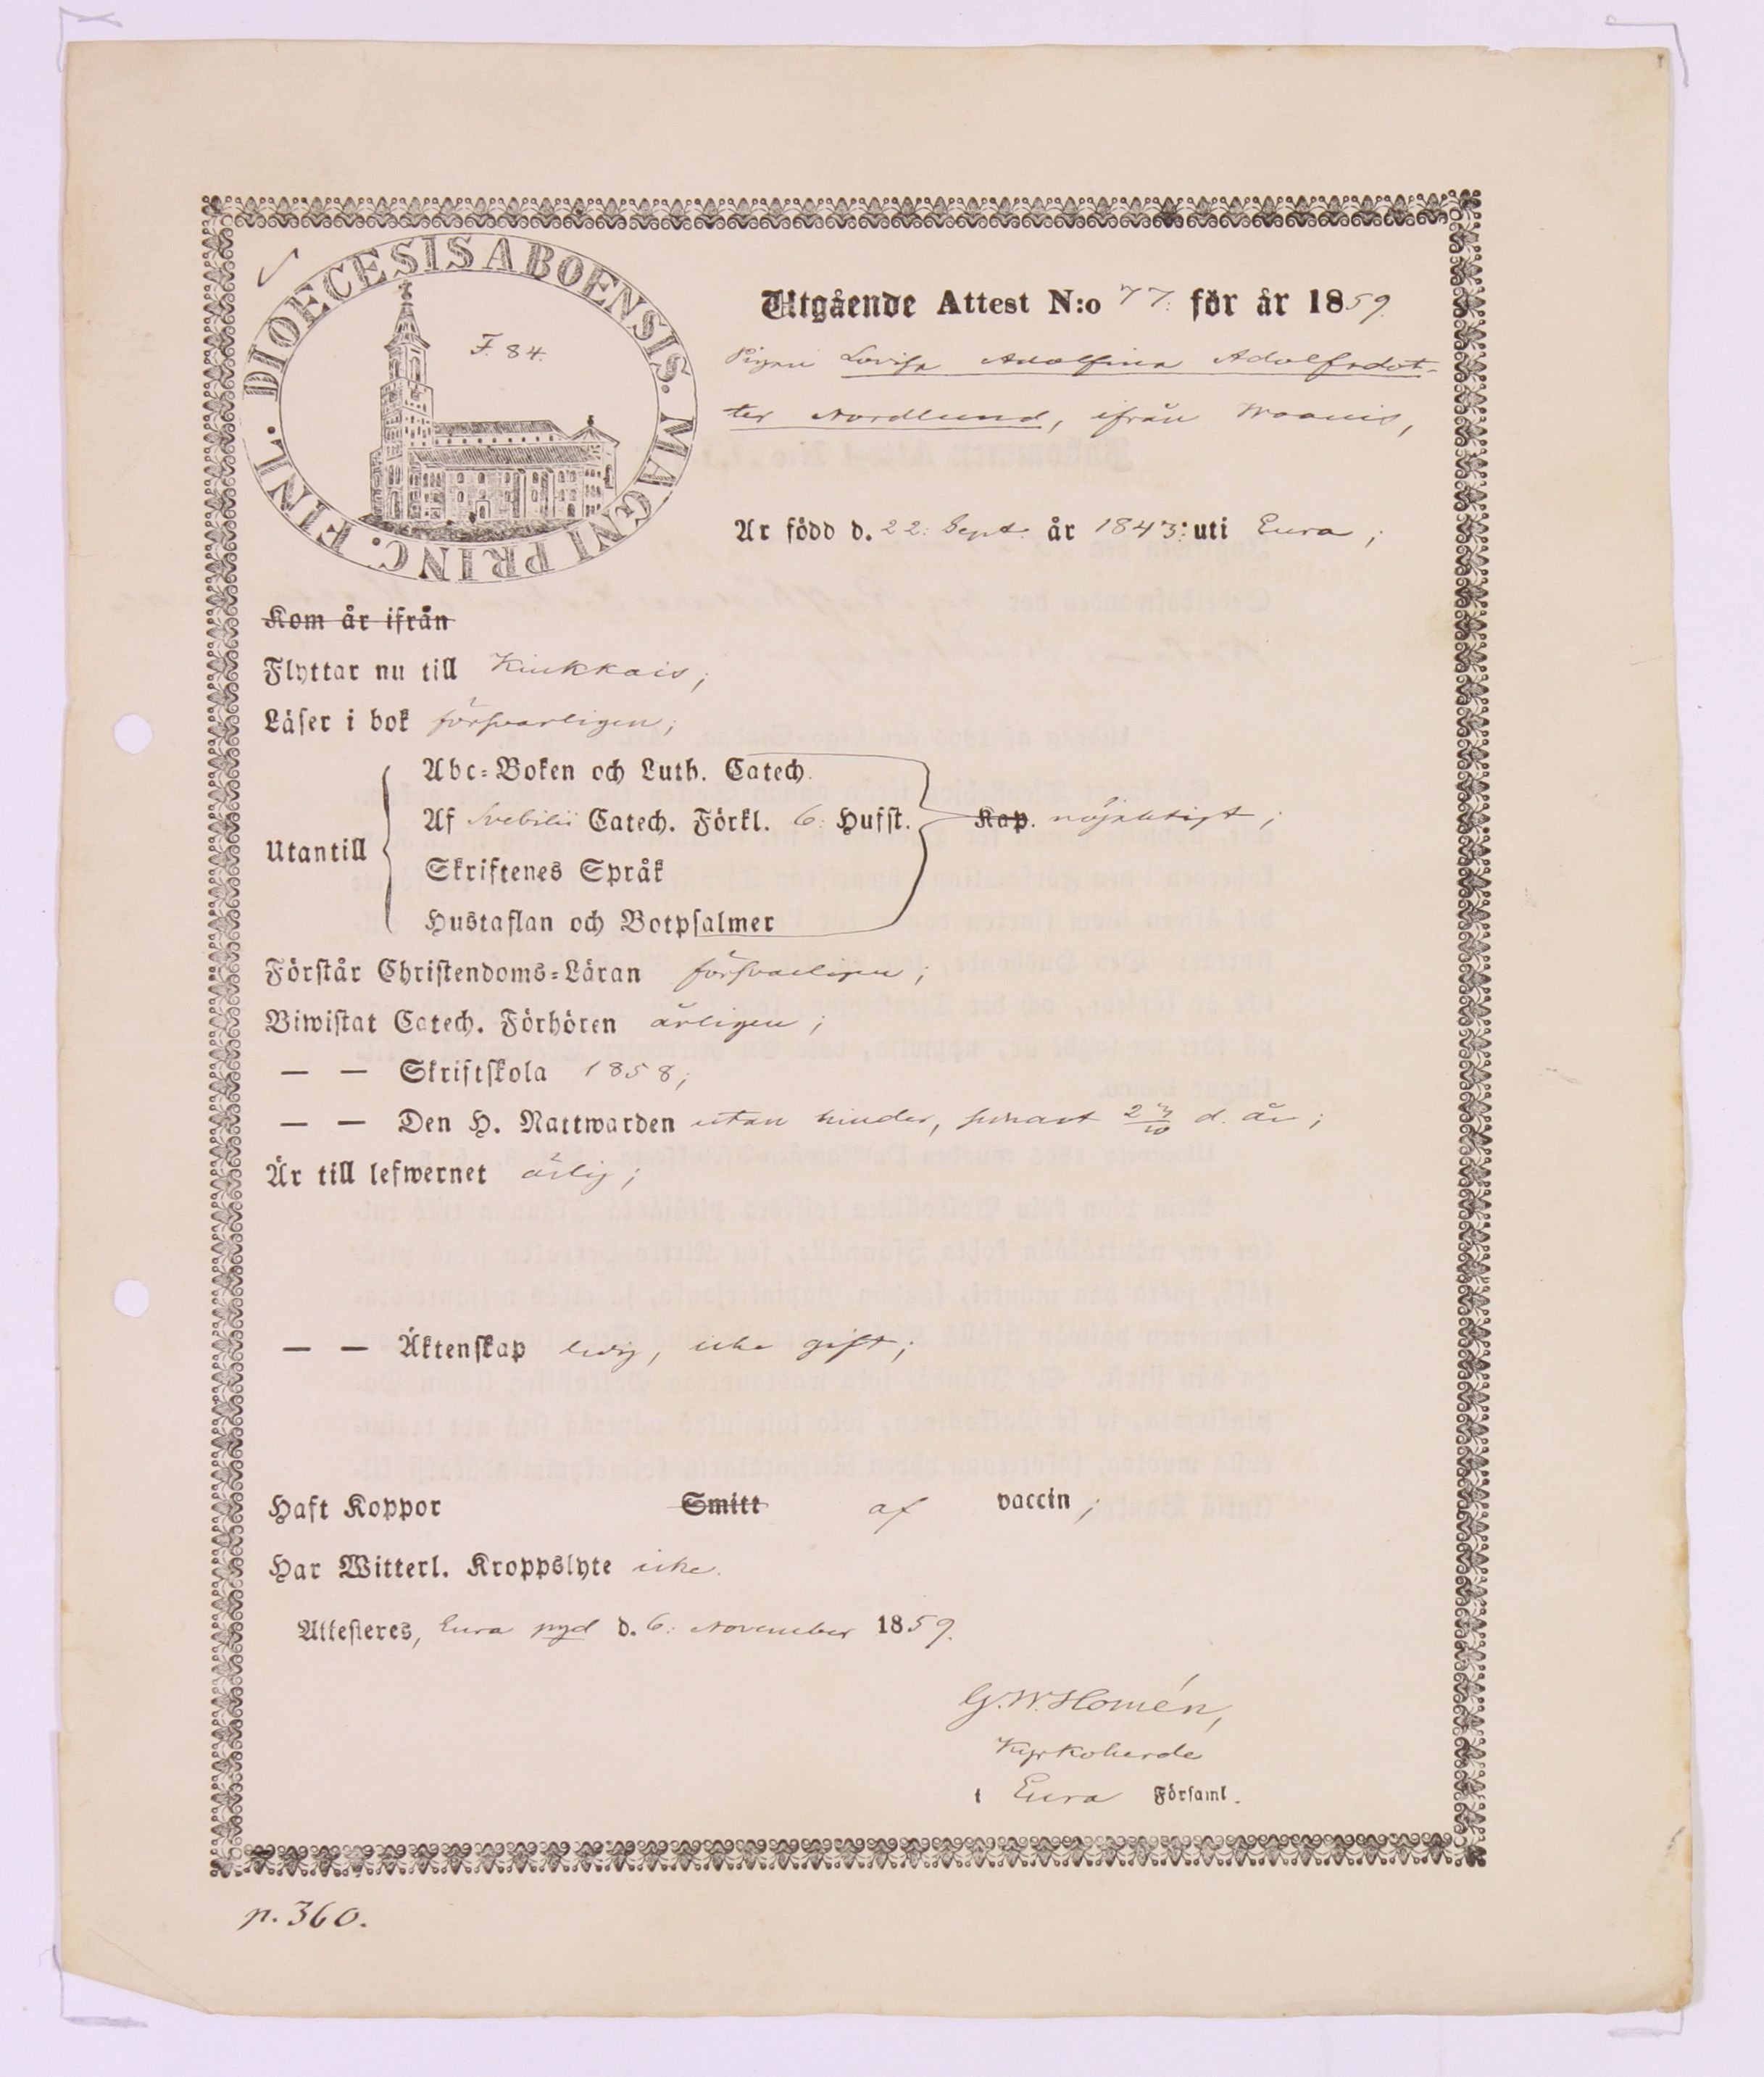 DIOECESIS ABOENSIS. MAGNI PRINC. FINL.
F. 84.
Utgående Attest N:o 77. för år 1859.
Pigan Lovisa Adolfina Adolfsdot-
ter Nordlund, ifrån Waanis,
Är född d. 22: Sept. år 1843: uti Eura;
Kom år ifrån
Flyttar nu till Kiukkais;
Läser i bok försvarligen;
Utantill
Abc-Boken och Luth. Catech.
Af Svebilii Catech. Förkl. 6: Hufst. Kap. nöjaktigt;
Skriftenes Språk
Hustaflan och Botpsalmer
Förstår Christendoms-Läran försvarligen;
Biwistat Catech. Förhören årligen;
— — Skriftskola 1858;
— — Den H. Nattwarden utan hinder, senast d. år;
Är till lefwernet ärlig;
— — Äktenskap ledig, icke gift;
Haft Koppor Smitt af vaccin;
Har Witterl. Kroppslyte icke.
Attesteres, Eura pgd d. 6: November 1859.
G. W. Homén,
Kyrkoherde
i Eura Församl.
p. 360.